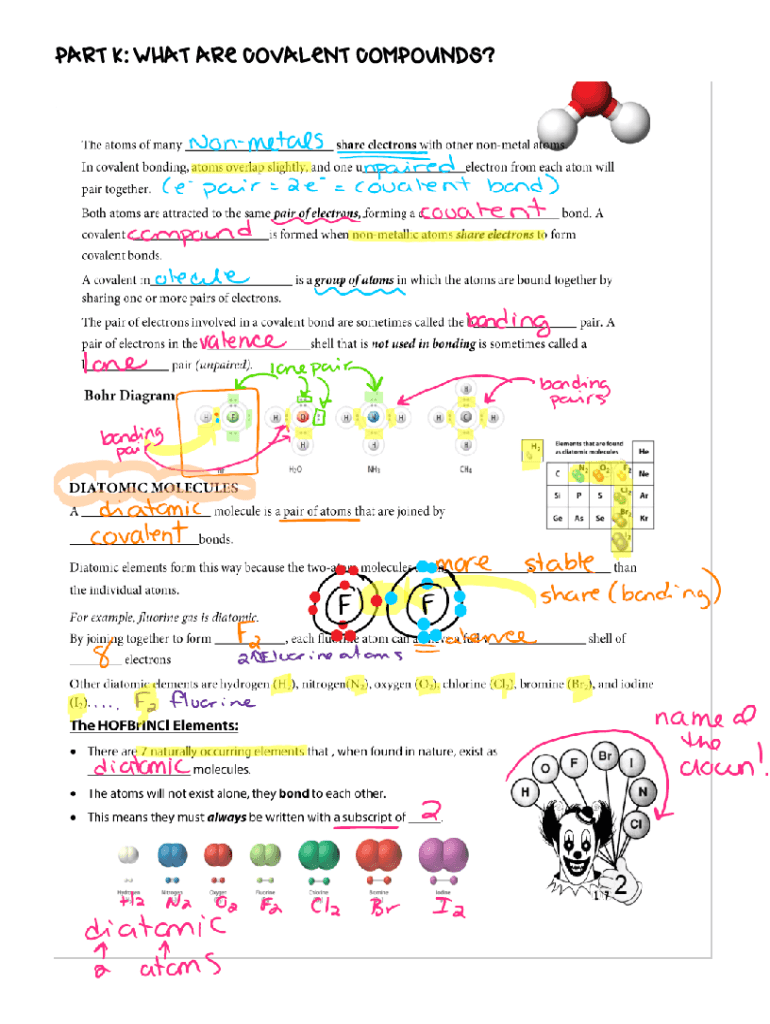 PART K: WHAT ARE COVALENT COMPOUNDS?
The atoms of many Non-metals share electrons with other non-metal atoms.
In covalent bonding, atoms overlap slightly, and one unpaired electron from each atom will
pair together. (e⁻ pair = 2e⁻ = covalent bond)
Both atoms are attracted to the same pair of electrons, forming a covalent bond. A
covalent compound is formed when non-metallic atoms share electrons to form
covalent bonds.
A covalent molecule is a group of atoms in which the atoms are bound together by
sharing one or more pairs of electrons.
The pair of electrons involved in a covalent bond are sometimes called the bonding pair. A
pair of electrons in the valence shell that is not used in bonding is sometimes called a
lone pair (unpaired).
lone pair
Bohr Diagram
bonding
pairs
bonding
pair
H F
H O H
H
H N H
H
H
H C H
H
H₂O
NH₃
CH₄
H₂
Elements that are found
as diatomic molecules
He
C N₂ O₂ F₂ Ne
Si P S Cl₂ Ar
Ge As Se Br₂ Kr
I₂
DIATOMIC MOLECULES
A diatomic molecule is a pair of atoms that are joined by
covalent bonds.
Diatomic elements form this way because the two-atom molecules more stable than
the individual atoms.
share (bonding)
F F
For example, fluorine gas is diatomic.
By joining together to form F₂, each fluorine atom can valence shell of
8 electrons
2 Fluorine atoms
Other diatomic elements are hydrogen (H₂), nitrogen(N₂), oxygen (O₂), chlorine (Cl₂), bromine (Br₂), and iodine
(I₂)..... F₂ fluorine
The HOFBrINCl Elements:
name of
the
clown!
• There are 7 naturally occurring elements that , when found in nature, exist as
diatomic molecules.
• The atoms will not exist alone, they bond to each other.
• This means they must always be written with a subscript of 2.
H O F Br I N Cl
2
17
Hydrogen Nitrogen Oxygen Fluorine Chlorine Bromine Iodine
H₂ N₂ O₂ F₂ Cl₂ Br I₂
diatomic
2 atoms